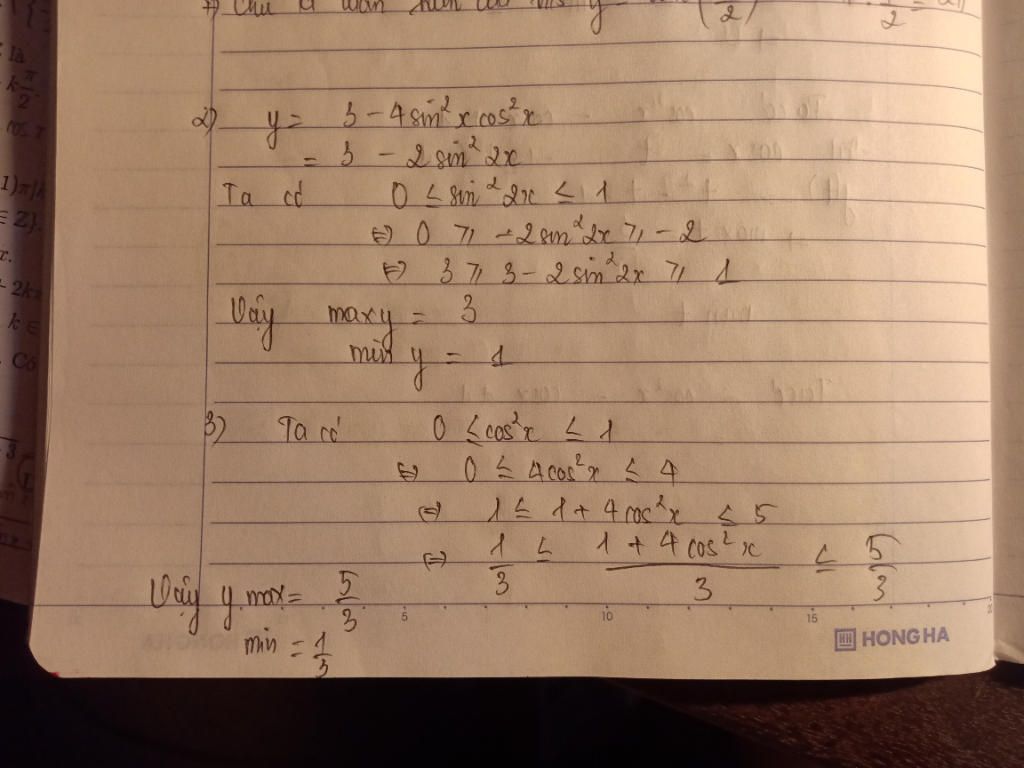 2) y = 3 - 4 sin²x cos²x
= 3 - 2 sin² 2x
Ta có 0 ≤ sin² 2x ≤ 1
⇔ 0 ⩾ -2 sin² 2x ⩾ -2
⇔ 3 ⩾ 3 - 2 sin² 2x ⩾ 1
Vậy max y = 3
min y = 1
3) Ta có 0 ≤ cos²x ≤ 1
⇔ 0 ≤ 4cos²x ≤ 4
⇔ 1 ≤ 1 + 4cos²x ≤ 5
⇔ 1/3 ≤ (1 + 4cos²x)/3 ≤ 5/3
Vậy y max = 5/3
min = 1/3
5 10 15
HH HONG HA